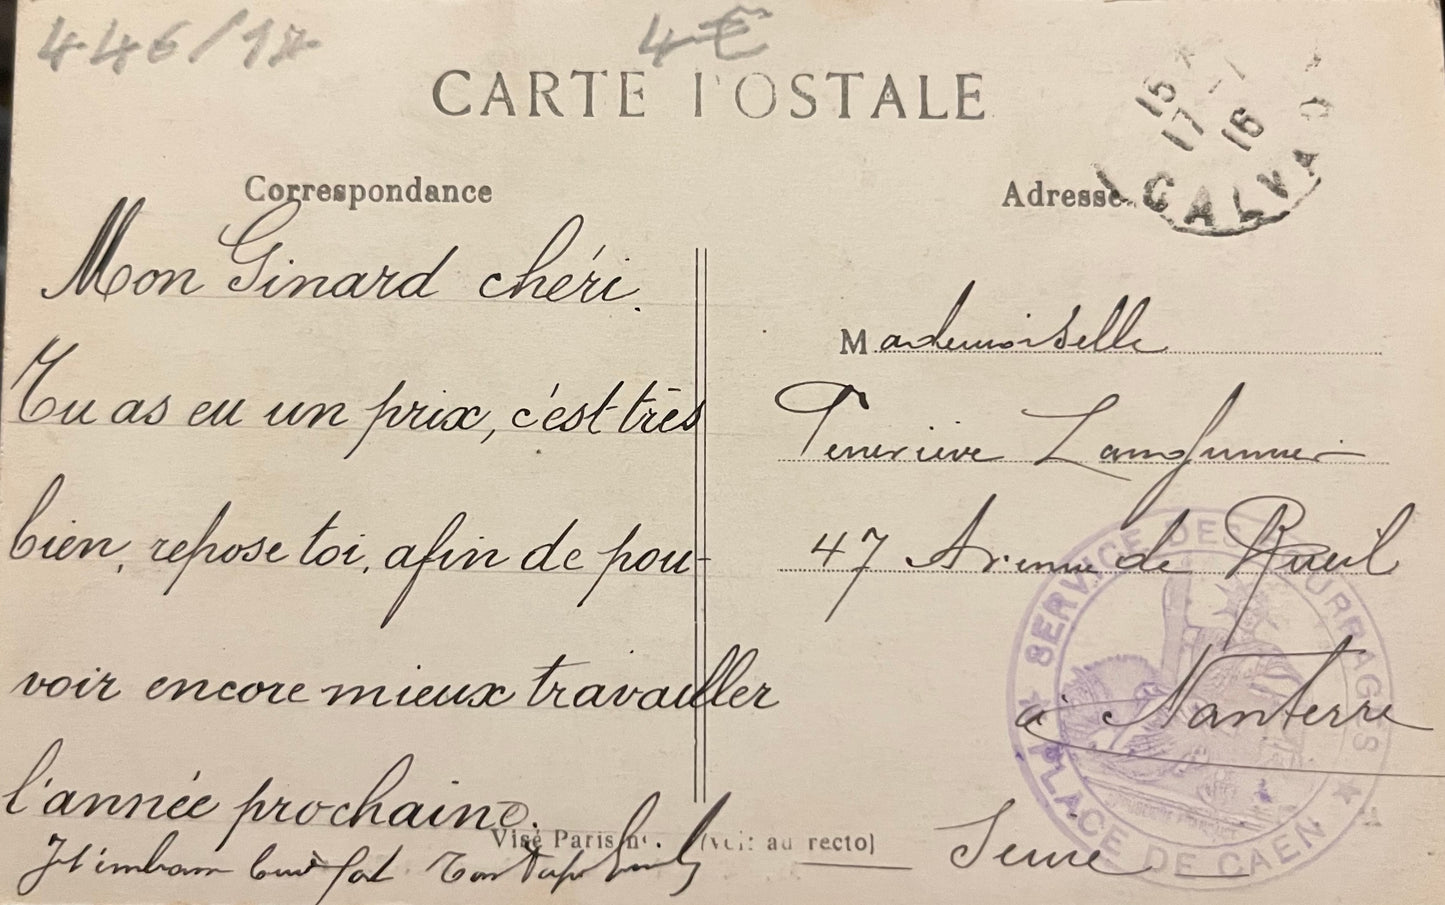 446/17
4€
CARTE POSTALE
15 *
17 - 7
16
CALVADO
Correspondance
Adresse
Mon Ginard chéri.
Tu as eu un prix, c'est très
bien, repose toi, afin de pou-
voir encore mieux travailler
l'année prochaine.
Mademoiselle
Geneviève
47 Avenue de Rueil
à Nanterre
Seine
SERVICE DES FOURRAGES
PLACE DE CAEN
Visé Paris nº. (voir au recto)
Je t'embrasse bien fort Ton Papa